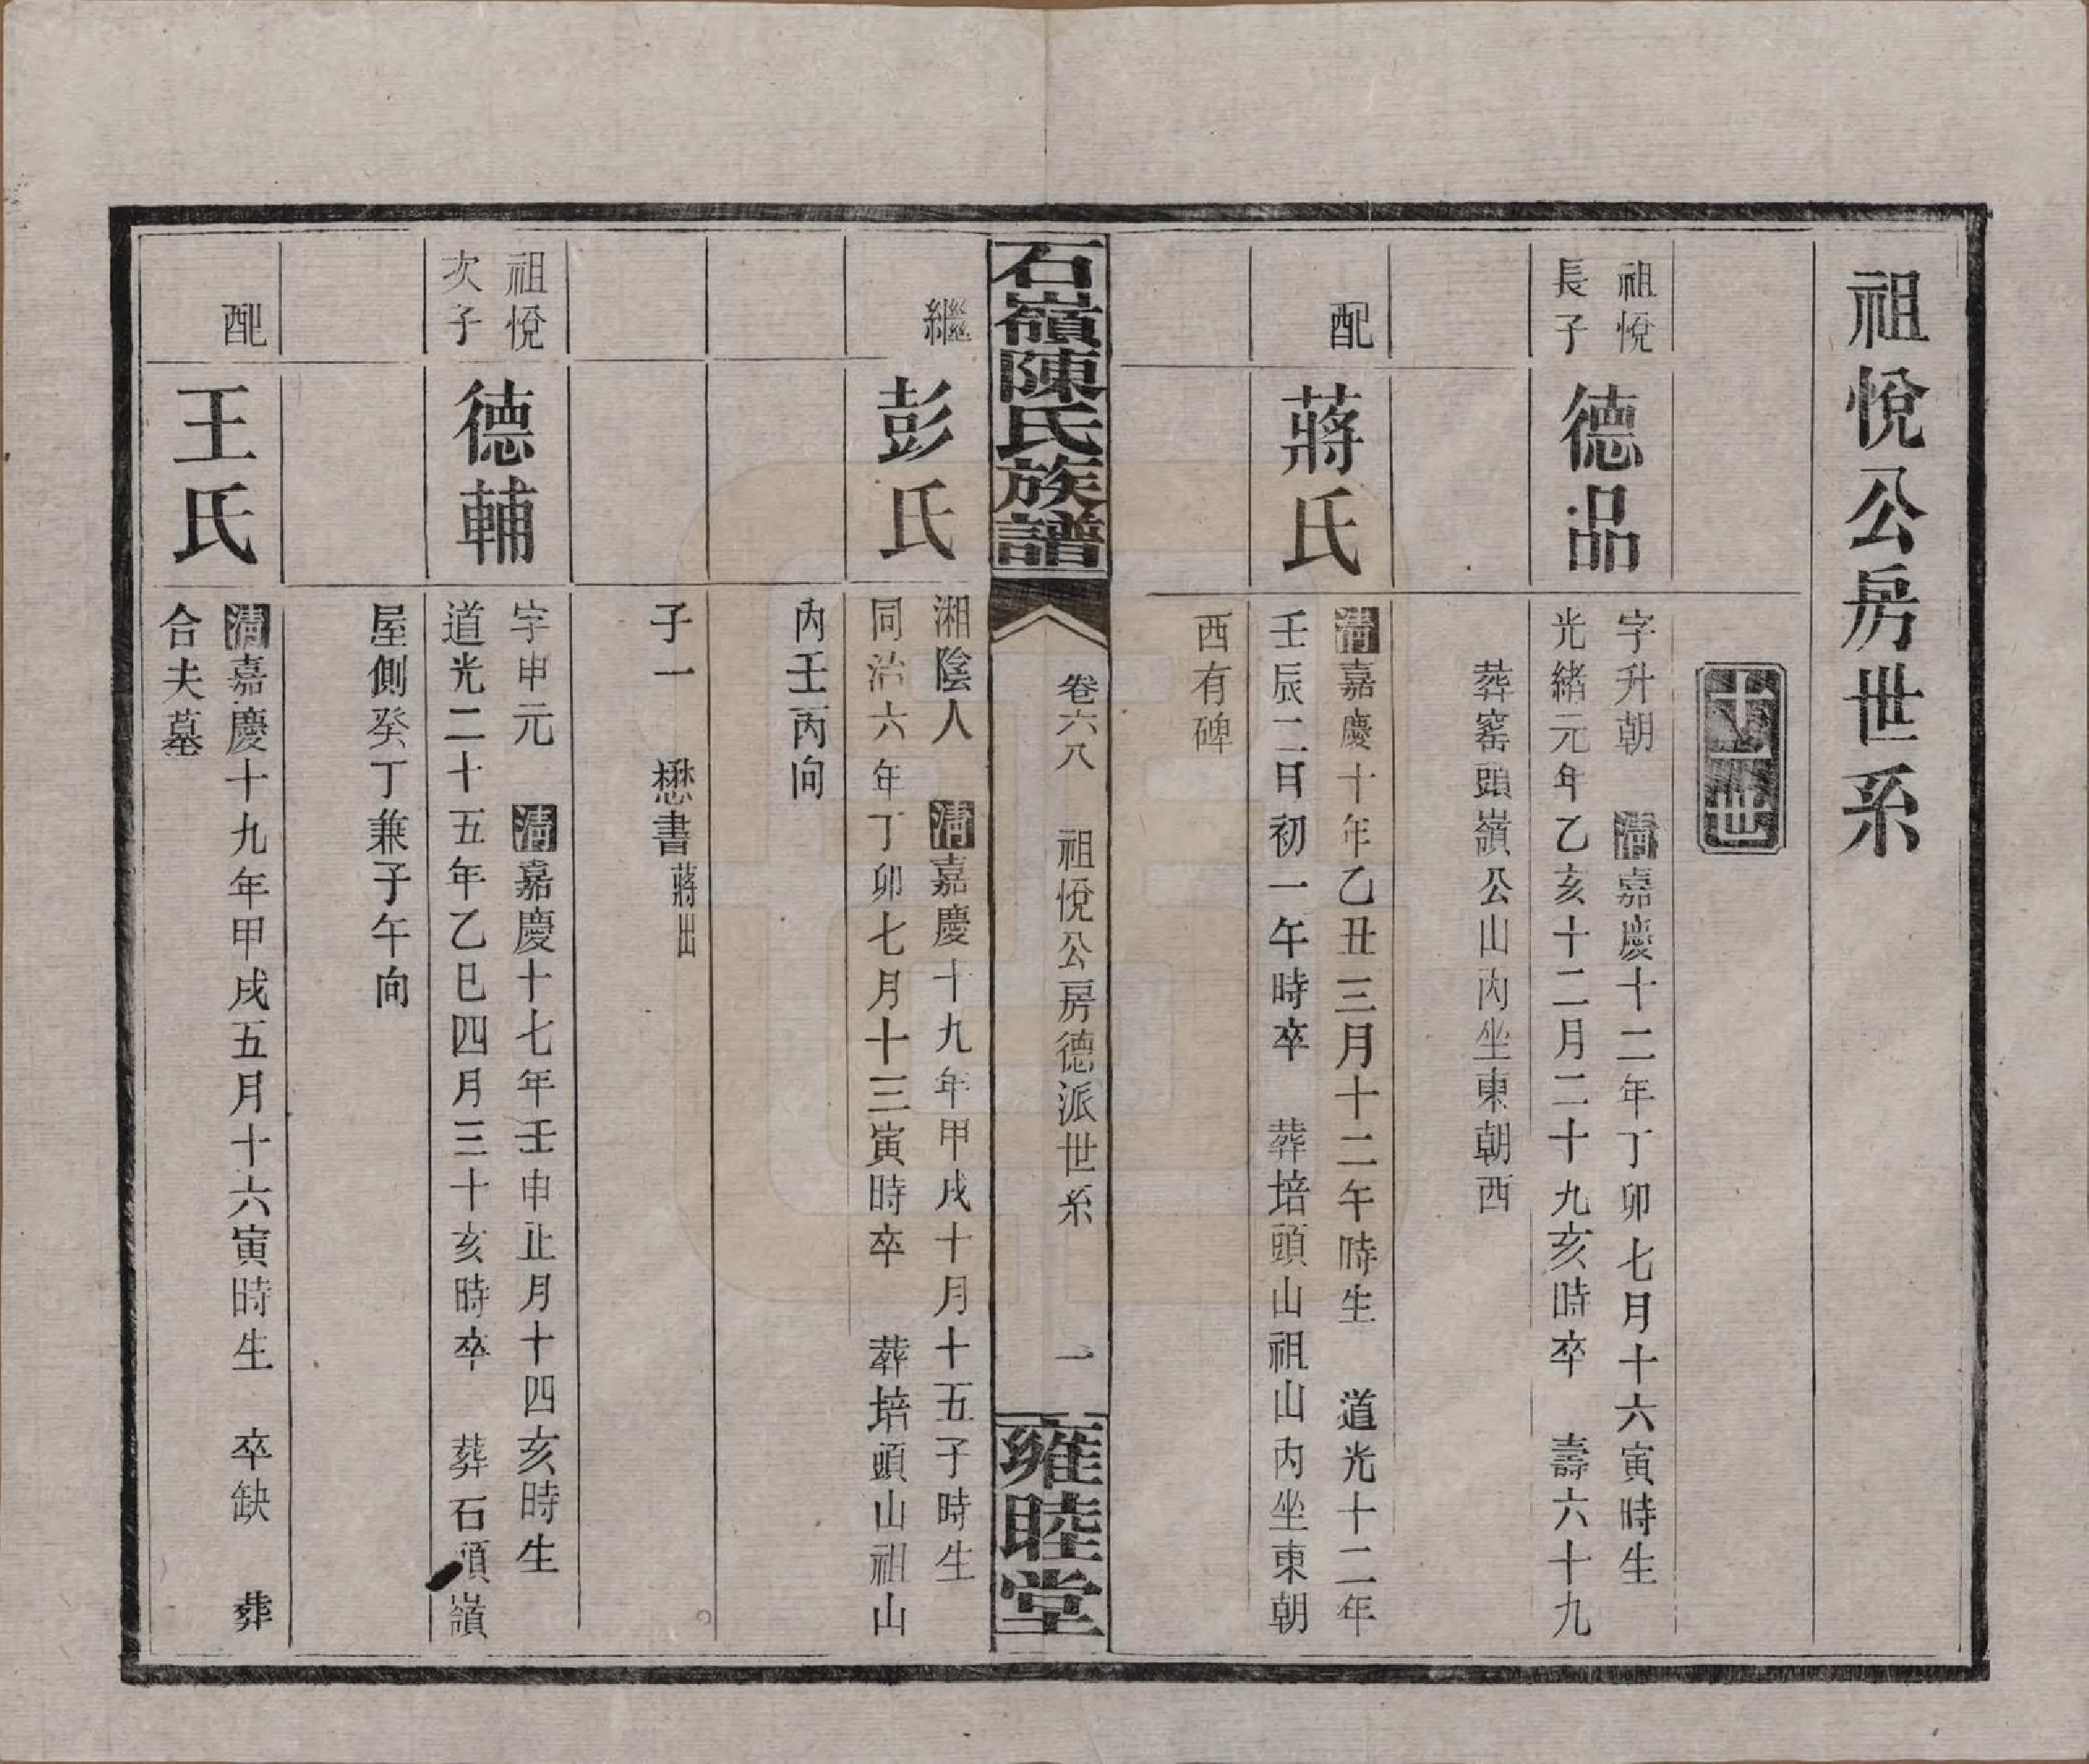 祖悅公房世系
十世
祖悅
長子
德品
字升朝　清嘉慶十二年丁卯七月十六寅時生
光緒元年乙亥十二月二十九亥時卒　壽六十九
葬窰頭嶺公山內坐東朝西
配
蔣氏
清嘉慶十年乙丑三月十二午時生　道光十二年
壬辰二月初一午時卒　葬培頭山祖山內坐東朝
西有碑
石嶺陳氏族譜
卷六八　祖悅公房德派世系　一
雍睦堂
繼
彭氏
湘陰人　清嘉慶十九年甲戌十月十五子時生
同治六年丁卯七月十三寅時卒　葬培頭山祖山
內壬丙向
子一　懋書蔣出
祖悅
次子
德輔
字申元　清嘉慶十七年壬申正月十四亥時生
道光二十五年乙巳四月三十亥時卒　葬石頭嶺
屋側癸丁兼子午向
配
王氏
清嘉慶十九年甲戌五月十六寅時生　卒缺　葬
合夫墓